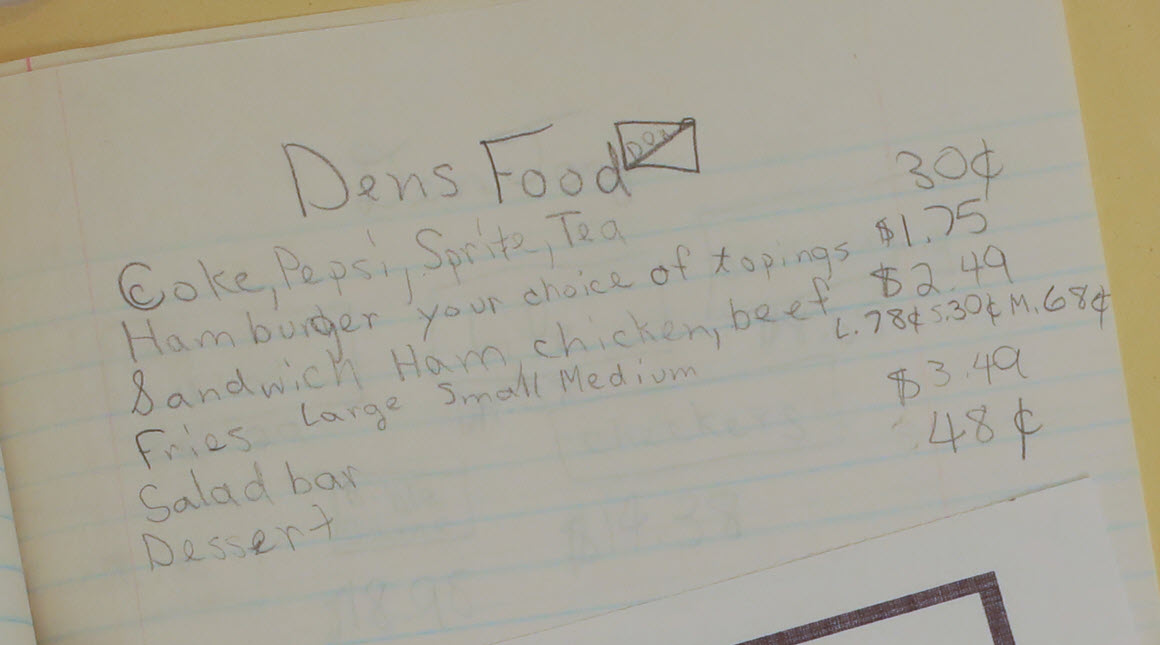 Dens Food
Coke, Pepsi, Sprite, Tea 30¢
Hamburger your choice of topings $1.75
Sandwich Ham, chicken, beef $2.49
Fries Large Small Medium L.78¢ S.30¢ M.68¢
Salad bar $3.49
Dessert 48¢